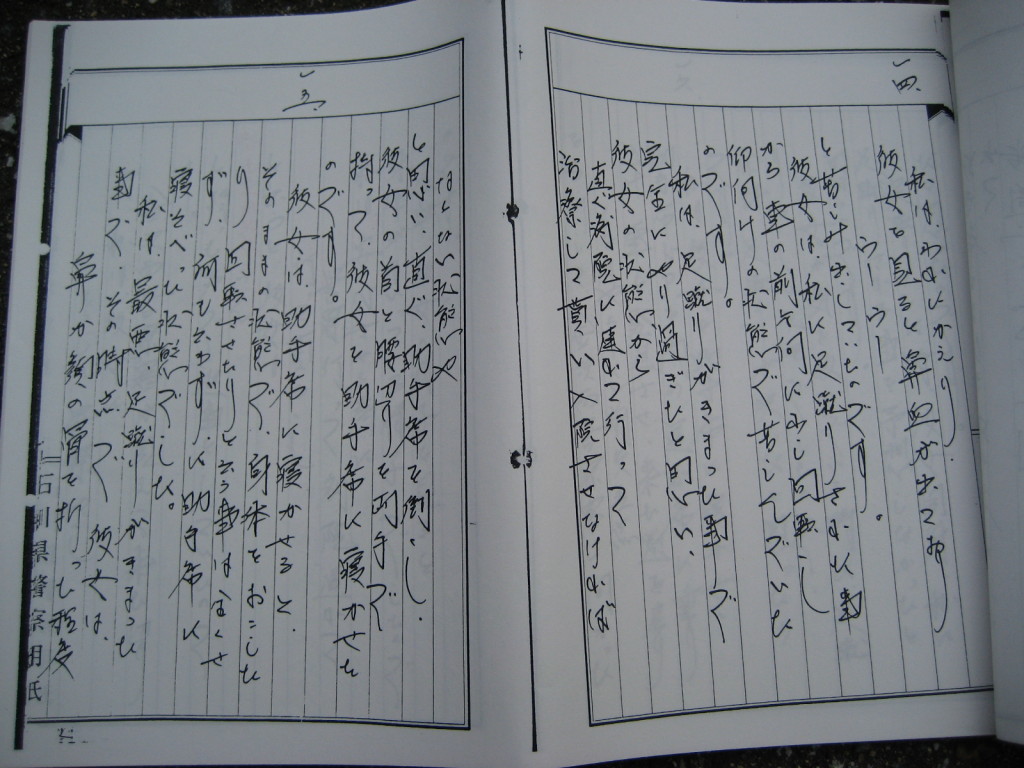 一四
私は、われにかえり、
彼女を見ると鼻血が出ており
うーうー
と苦しみ出していたのです。
彼女は、私に足蹴りされ車
から車の前を何回わし回転し
仰向けの状態で苦しんでいた
のです。
私は、足蹴りがきまった事で
完全にやり過ぎたと思い、
彼女の状態から
直ぐ病院に連れて行って
治療して貰い入院させなければ
一五
ならない状態や
と思い、直ぐ、助手席を倒し、
彼女の首と腰切りを両手で
持って、彼女を助手席に寝かせた
のです。
彼女は、助手席に寝かせると、
そのままの状態で、身体をおこした
り回転させたりと云う事はなくせ
ず、何も云わず、に助手席に
寝そべった状態でした。
私は、最悪、足蹴りがきまった
事で、その時点で彼女は、
鼻か顔の骨を折った程度
石川県警察